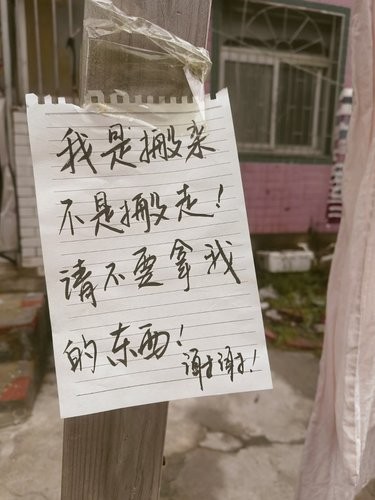 我是搬来
不是搬走！
请不要拿我
的东西！
谢谢！